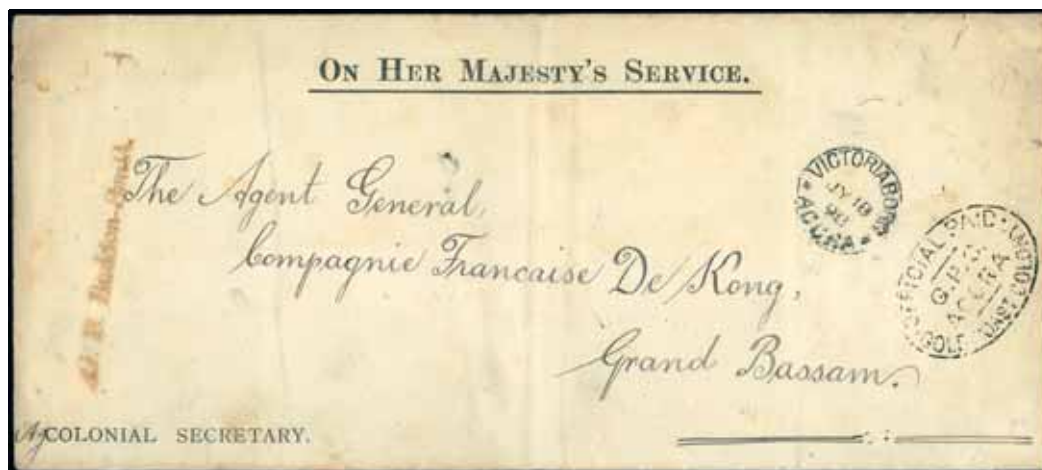 ON HER MAJESTY'S SERVICE.
The Agent General,
Compagnie Francaise De Kong,
Grand Bassam.
VICTORIABORG
JY 18
98
ACCRA
OFFICIAL PAID
G.P.O.
ACCRA
GOLD COAST COLONY
Ag COLONIAL SECRETARY.